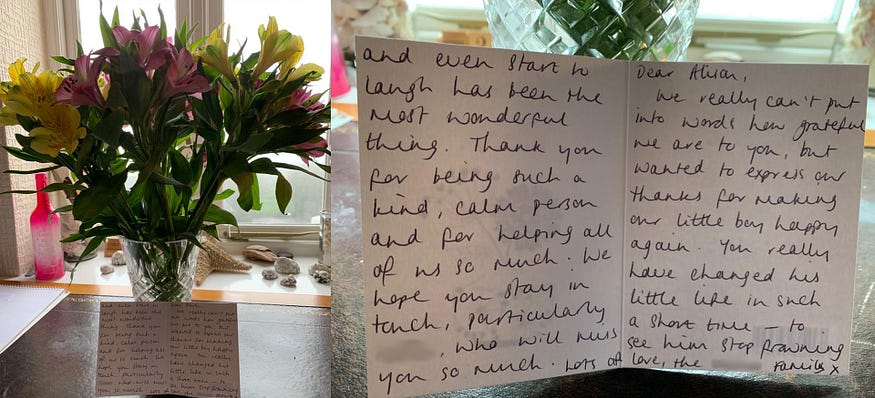 Dear Alison,
We really can't put
into words how grateful
we are to you, but
wanted to express our
thanks for making
our little boy happy
again. You really
have changed his
little life in such
a short time — to
see him stop frowning
and even start to
laugh has been the
most wonderful
thing. Thank you
for being such a
kind, calm person
and for helping all
of us so much. We
hope you stay in
touch, particularly
, who will miss
you so much. Lots of love, the
family x